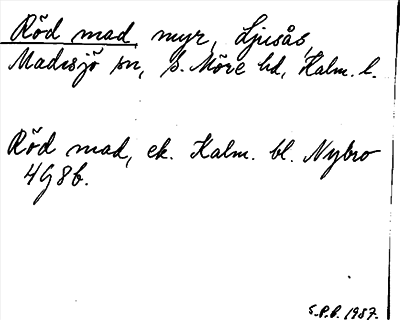 Röd mad, myr, Ljusås,
Madesjö sn, S. Möre hd, Kalm. l.
Röd mad, ek. Kalm. bl. Nybro
4G8b.
S.P.P. 1987.